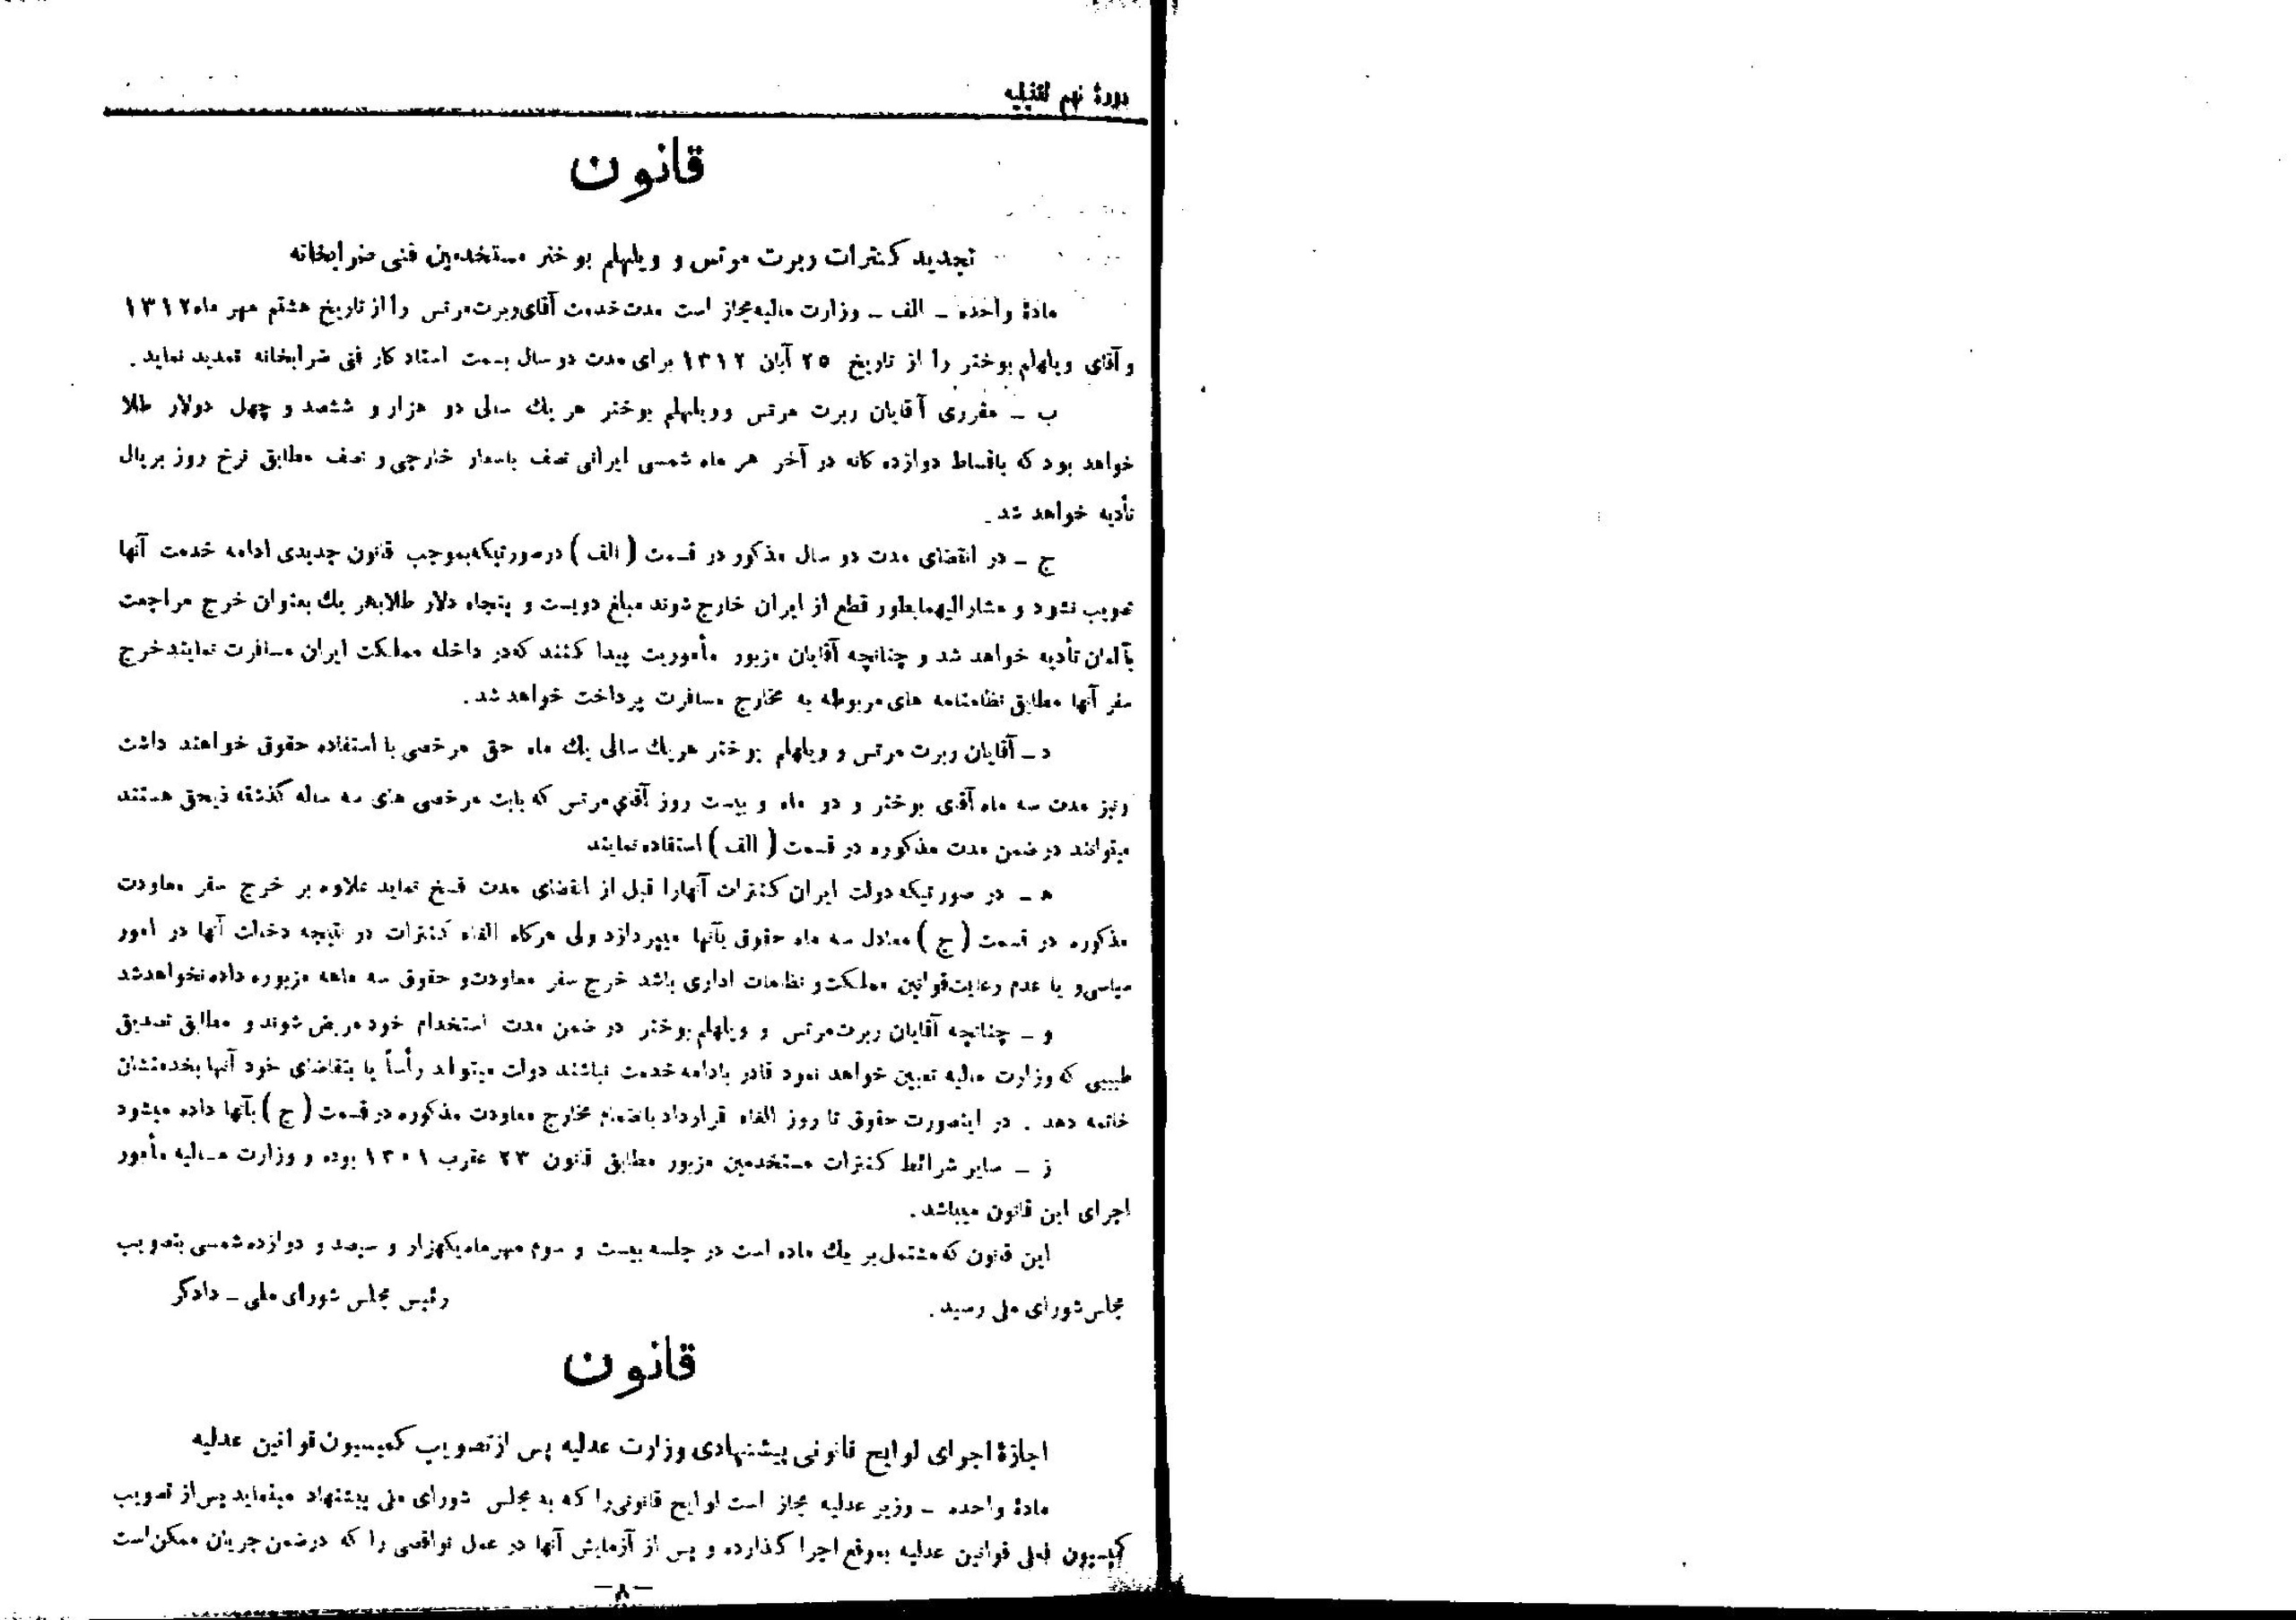 دورهٔ نهم تقنینیه
قانون
تجدید کنترات ربرت مرتس و ویلهلم بوختر مستخدمین فنی ضرابخانه
مادهٔ واحده ـ الف ـ وزارت مالیه مجاز است مدت خدمت آقای ربرت مرتس را از تاریخ هشتم مهر ماه ۱۳۱۲
و آقای ویلهلم بوختر را از تاریخ ۲۵ آبان ۱۳۱۲ برای مدت دو سال بسمت استاد کار فنی ضرابخانه تمدید نماید .
ب ـ مقرری آقایان ربرت مرتس و ویلهلم بوختر هر یك سالی دو هزار و ششصد و چهل دولار طلا
خواهد بود که باقساط دوازده گانه در آخر هر ماه شمسی ایرانی نصف باسعار خارجی و نصف مطابق نرخ روز بریال
تأدیه خواهد شد .
ج ـ در انقضای مدت دو سال مذکور در قسمت ( الف ) درصورتیکه بموجب قانون جدیدی ادامه خدمت آنها
تصویب نشود و مشارالیهما بطور قطع از ایران خارج شوند مبلغ دویست و پنجاه دلار طلا بهر یك بعنوان خرج مراجعت
بآلمان تأدیه خواهد شد و چنانچه آقایان مزبور مأموریت پیدا کنند که در داخله مملکت ایران مسافرت نمایند خرج
سفر آنها مطابق نظامنامه های مربوطه به مخارج مسافرت پرداخت خواهد شد .
د ـ آقایان ربرت مرتس و ویلهلم بوختر هر یك سالی یك ماه حق مرخصی با استفاده حقوق خواهند داشت
ونیز مدت سه ماه آقای بوختر و دو ماه و بیست روز آقای مرتس که بابت مرخصی های سه ساله گذشته ذیحق هستند
میتوانند در ضمن مدت مذکوره در قسمت ( الف ) استفاده نمایند
ه ـ در صورتیکه دولت ایران کنترات آنهارا قبل از انقضای مدت فسخ نماید علاوه بر خرج سفر معاودت
مذکوره در قسمت ( ج ) معادل سه ماه حقوق بآنها میپردازد ولی هرگاه الغاء کنترات در نتیجه دخالت آنها در امور
سیاسی و یا عدم رعایت قوانین مملکت و نظامات اداری باشد خرج سفر معاودت و حقوق سه ماهه مزبوره داده نخواهد شد
و ـ چنانچه آقایان ربرت مرتس و ویلهلم بوختر در ضمن مدت استخدام خود مریض شوند و مطابق تصدیق
طبیبی که وزارت مالیه تعیین خواهد نمود قادر بادامه خدمت نباشند دولت میتواند رأساً یا بتقاضای خود آنها بخدمتشان
خاتمه دهد . در اینصورت حقوق تا روز الغاء قرارداد بانضمام مخارج معاودت مذکوره در قسمت ( ج ) بآنها داده میشود
ز ـ سایر شرائط کنترات مستخدمین مزبور مطابق قانون ۲۳ عقرب ۱۳۰۱ بوده و وزارت مالیه مأمور
اجرای این قانون میباشد .
این قانون که مشتمل بر یك ماده است در جلسه بیست و سوم مهر ماه یکهزار و سیصد و دوازده شمسی بتصویب
مجلس شورای ملی رسید . رئیس مجلس شورای ملی ـ دادگر
قانون
اجازهٔ اجرای لوایح قانونی پیشنهادی وزارت عدلیه پس از تصویب کمیسیون قوانین عدلیه
مادهٔ واحده ـ وزیر عدلیه مجاز است لوایح قانونی را که به مجلس شورای ملی پیشنهاد مینماید پس از تصویب
کمیسیون فعلی قوانین عدلیه بموقع اجرا گذارده و پس از آزمایش آنها در عمل نواقصی را که در ضمن جریان ممکن است
ـ۸ـ